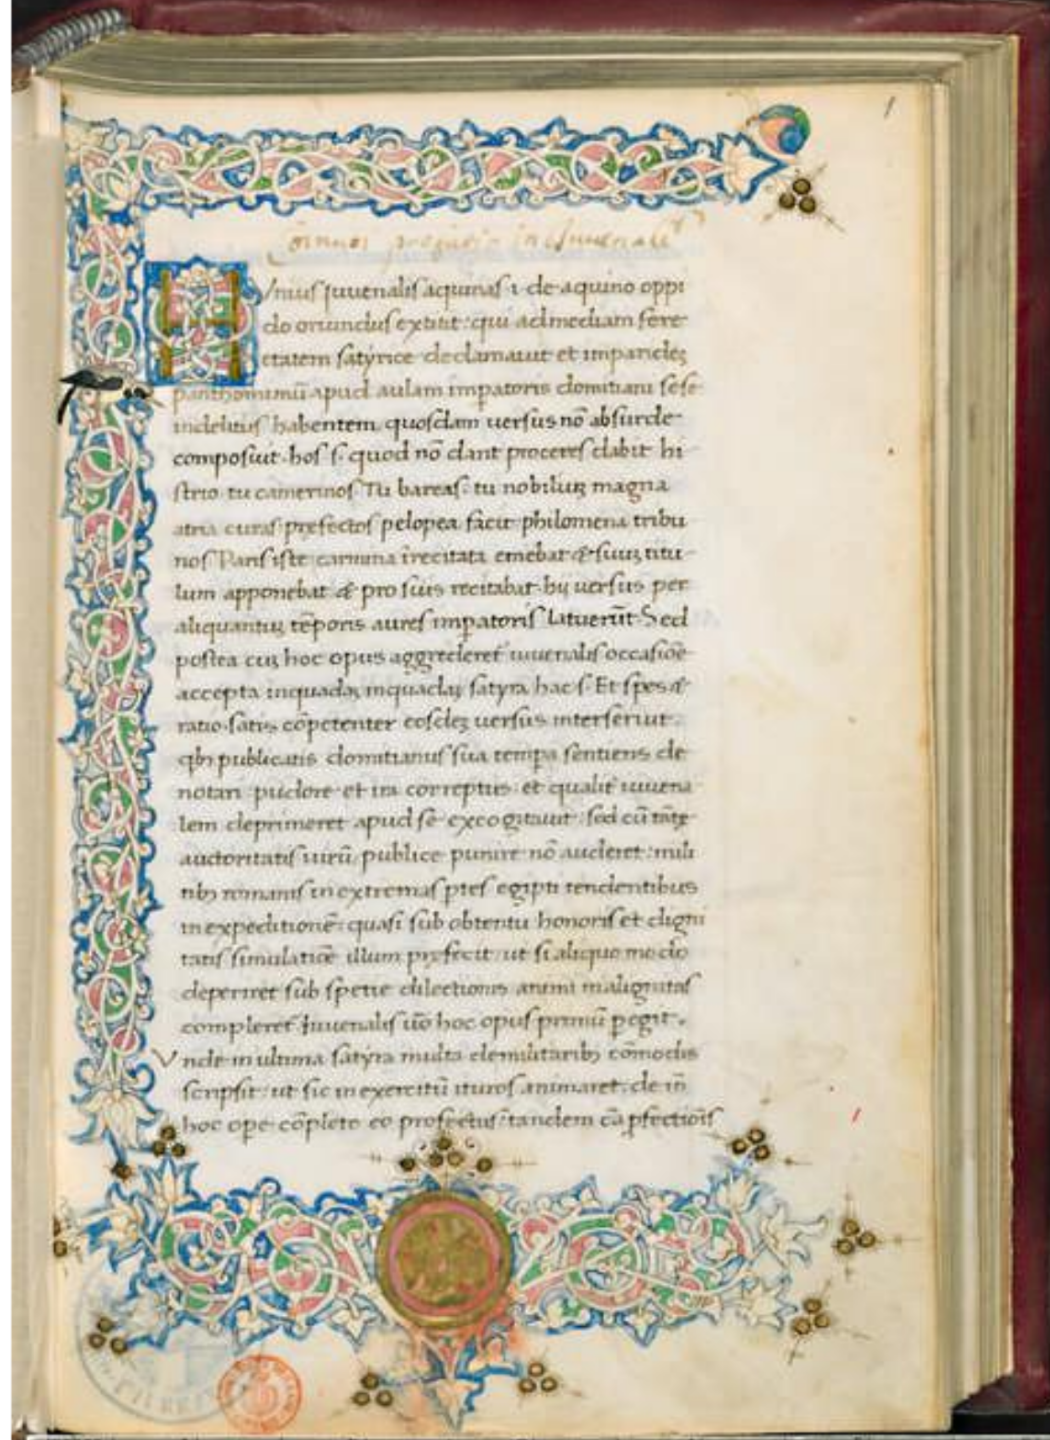 1
in Iuuenale
Iunius Juuenalis aquinas .i. de aquino oppi
do oriundus extitit: qui ad mediam fere
etatem satyrice declamauit et imparidez
panthomimū apud aulam impatoris domitiani sese
indelitiis habentem quosdam uersus nō absurde
composuit. hos .s. quod nō dant proceres dabit hi
strio. tu camerinos. Tu bareas. tu nobiliuꝫ magna
atria curas prefectos pelopea facit philomena tribu
nos Paris iste carmina irecitata emebat & suuꝫ titu
lum apponebat & pro suis recitabat. hij uersus per
aliquantuꝫ tēporis aures impatoris latuerūt. Sed
postea cuꝫ hoc opus aggrederet iuuenalis occasiōe
accepta inquadaꝫ inquadaꝫ satyra hac .s. Et spes &
ratio. satis cōpetenter eosdeꝫ uersus interseruit.
qbꝫ publicatis domitianus sua tempa sentiens de
notari pudore et ira correptus. et qualit̄ iuuena
lem deprimeret apud se excogitauit. sed cū tāte
auctoritatis uirū publice punire nō auderet: mili
tibꝫ romanis in extremas ptes egipti tendentibus
in expeditionē: quasi sub obtentu honoris et digni
tatis simulatiōe illum prefecit ut si aliquo modo
deperiret sub specie dilectionis animi malignitas
compleret. Iuuenalis uō hoc opus primū pegit.
Vnde in ultima satyra multa de militaribꝫ cōmodis
scripsit: ut sic in exercitū ituros animaret. de iñ
hoc ope cōpleto eo profectus: tandem cā pfectiōis